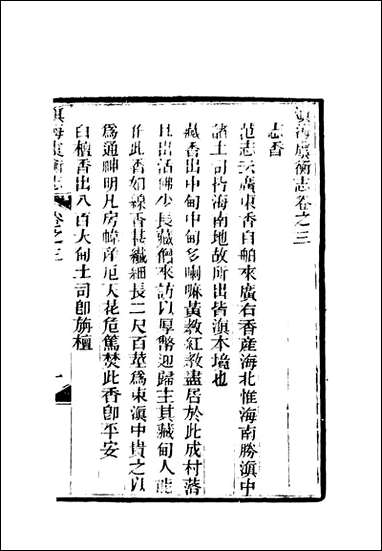 滇海虞衡志卷之三
志香
范志云廣東香自舶來廣右香產海北惟海南勝滇中
諸土司猶海南地故所出皆滇本境也
藏香出中甸中甸多喇嘛黃教紅教盡居於此成村落
且出活佛少長藏僧來訪以厚幣迎歸主其藏甸人能
作此香如線香甚纖細長二尺百莖為束滇中貴之以
為通神明凡房幃產厄天花危篤焚此香卽平安
白檀香出八百大甸土司卽旃檀
滇海虞衡志 卷之三 一